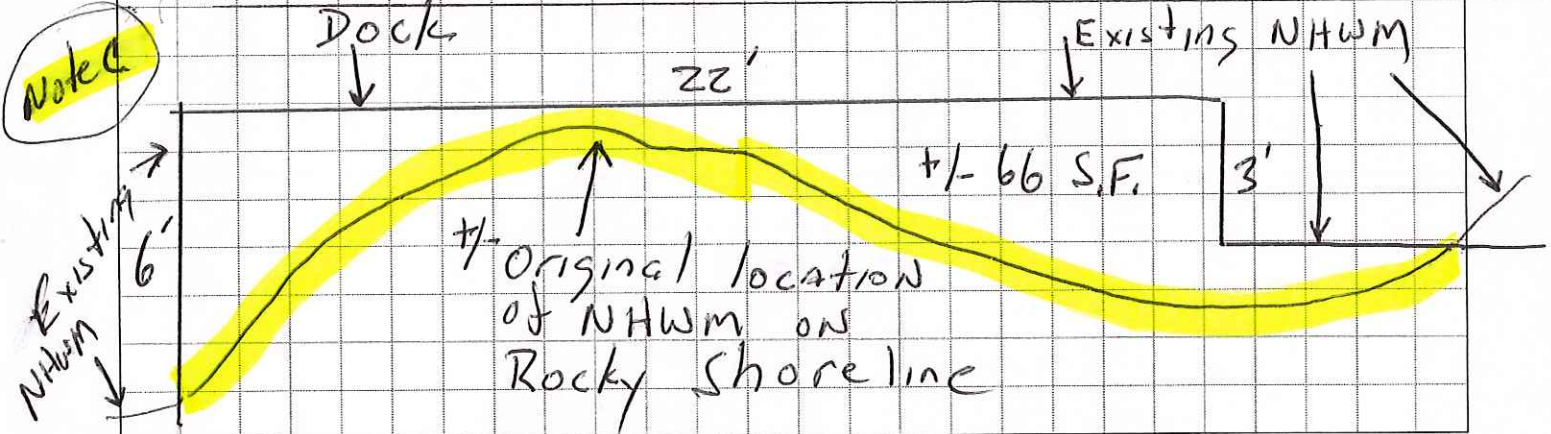 Note C
Dock
22'
Existing NHWM
Existing
NHWM
6'
+/- 66 S.F.
3'
+/- Original location
of NHWM on
Rocky Shoreline